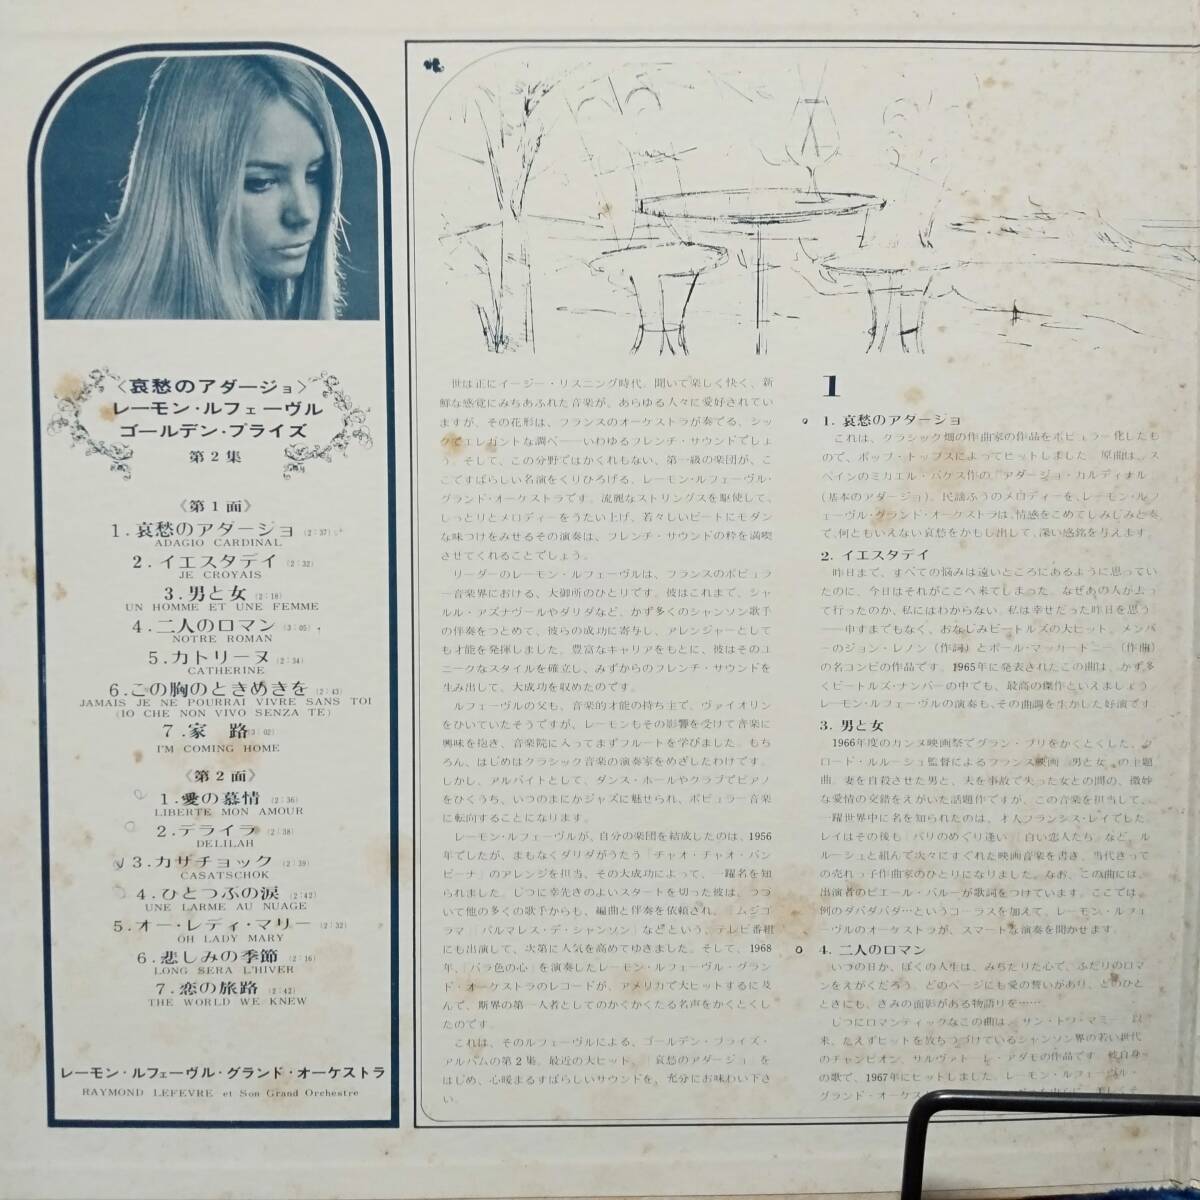 〈哀愁のアダージョ〉
レーモン・ルフェーヴル
ゴールデン・プライズ
第2集
《第1面》
1.哀愁のアダージョ(2:37)
ADAGIO CARDINAL
2.イエスタデイ(2:32)
JE CROYAIS
3.男と女(2:18)
UN HOMME ET UNE FEMME
4.二人のロマン(3:05)
NOTRE ROMAN
5.カトリーヌ(2:34)
CATHERINE
6.この胸のときめきを(2:43)
JAMAIS JE NE POURRAI VIVRE SANS TOI
(IO CHE NON VIVO SENZA TE)
7.家 路(3:02)
I'M COMING HOME
《第2面》
1.愛の慕情(2:36)
LIBERTE MON AMOUR
2.デライラ(2:38)
DELILAH
3.カザチョック(2:39)
CASATSCHOK
4.ひとつぶの涙(2:42)
UNE LARME AU NUAGE
5.オー・レディ・マリー(2:32)
OH LADY MARY
6.悲しみの季節(2:16)
LONG SERA L'HIVER
7.恋の旅路(2:42)
THE WORLD WE KNEW
レーモン・ルフェーヴル・グランド・オーケストラ
RAYMOND LEFEVRE et Son Grand Orchestre
世は正にイージー・リスニング時代。聞いて楽しく快く、新
鮮な感覚にみちあふれた音楽が、あらゆる人々に愛好されてい
ますが、その花形は、フランスのオーケストラが奏でる、シッ
クでエレガントな調べ――いわゆるフレンチ・サウンドでしょ
う。そして、この分野ではかくれもない、第一級の楽団が、こ
こですばらしい名演をくりひろげる、レーモン・ルフェーヴル・
グランド・オーケストラです。流麗なストリングスを駆使して、
しっとりとメロディーをうたい上げ、若々しいビートにモダン
な味つけをみせるその演奏は、フレンチ・サウンドの粋を満喫
させてくれることでしょう。
リーダーのレーモン・ルフェーヴルは、フランスのポピュラ
ー音楽界における、大御所のひとりです。彼はこれまで、シャ
ルル・アズナヴールやダリダなど、かず多くのシャンソン歌手
の伴奏をつとめて、彼らの成功に寄与し、アレンジャーとして
も才能を発揮しました。豊富なキャリアをもとに、彼はそのユ
ニークなスタイルを確立し、みずからのフレンチ・サウンドを
生み出して、大成功を収めたのです。
ルフェーヴルの父も、音楽的才能の持ち主で、ヴァイオリン
をひいていたそうですが、レーモンもその影響を受けて音楽に
興味を抱き、音楽院に入ってまずフルートを学びました。もち
ろん、はじめはクラシック音楽の演奏家をめざしたわけです。
しかし、アルバイトとして、ダンス・ホールやクラブでピアノ
をひくうち、いつのまにかジャズに魅せられ、ポピュラー音楽
に転向することになります。
レーモン・ルフェーヴルが、自分の楽団を結成したのは、1956
年でしたが、まもなくダリダがうたう「チャオ・チャオ・バン
ビーナ」のアレンジを担当、その大成功によって、一躍名を知
られました。じつに幸先きのよいスタートを切った彼は、つづ
いて他の多くの歌手からも、編曲と伴奏を依頼され、「ムジコ
ラマ」「パルマレス・デ・シャンソン」などという、テレビ番組
にも出演して、次第に人気を高めてゆきました。そして、1968
年、「バラ色の心」を演奏したレーモン・ルフェーヴル・グラン
ド・オーケストラのレコードが、アメリカで大ヒットするに及
んで、斯界の第一人者としてのかくかくたる名声をかくとくし
たのです。
これは、そのルフェーヴルによる、ゴールデン・プライズ・
アルバムの第2集。最近の大ヒット、「哀愁のアダージョ」を
はじめ、心暖まるすばらしいサウンドを、充分にお味わい下さ
い。
1
1. 哀愁のアダージョ
これは、クラシック畑の作曲家の作品をポピュラー化したも
ので、ポップ・トップスによってヒットしました。原曲は、ス
ペインのミカエル・バケス作の「アダージョ・カルディナル」
(基本のアダージョ)。民謡ふうのメロディーを、レーモン・ルフ
ェーヴル・グランド・オーケストラは、情感をこめてしみじみと奏
で、何ともいえない哀愁をかもし出して、深い感銘を与えます。
2. イエスタデイ
昨日まで、すべての悩みは遠いところにあるように思ってい
たのに、今日はそれがここへ来てしまった。なぜあの人が去っ
て行ったのか、私にはわからない。私は幸せだった昨日を思う
――申すまでもなく、おなじみビートルズの大ヒット。メンバ
ーのジョン・レノン(作詞)とポール・マッカートニー(作曲)
の名コンビの作品です。1965年に発表されたこの曲は、かず多
くビートルズ・ナンバーの中でも、最高の傑作といえましょう。
レーモン・ルフェーヴルの演奏も、その曲調を生かした好演です。
3. 男と女
1966年度のカンヌ映画祭でグラン・プリをかくとくした、ク
ロード・ルルーシュ監督によるフランス映画「男と女」の主題
曲。妻を自殺させた男と、夫を事故で失った女との間の、微妙
な愛情の交錯をえがいた話題作ですが、この音楽を担当して、
一躍世界中に名を知られたのは、才人フランシス・レイでした。
レイはその後も「パリのめぐり逢い」「白い恋人たち」など、ル
ルーシュと組んで次々にすぐれた映画音楽を書き、当代きって
の売れっ子作曲家のひとりになりました。なお、この曲には、
出演者のピエール・バルーが歌詞をつけています。ここでは、
例のダバダバダ…というコーラスを加えて、レーモン・ルフェ
ーヴルのオーケストラが、スマートな演奏を聞かせます。
4. 二人のロマン
いつの日か、ぼくの人生は、みちたりた心で、ふたりのロマ
ンをえがくだろう。どのページにも愛の誓いがあり、どのひと
ときにも、きみの面影がある物語りを……
じつにロマンティックなこの曲は、「サン・トワ・マミー」以
来、たえずヒットを放ちつづけているシャンソン界の若い世代
のチャンピオン、サルヴァトーレ・アダモの作品です。彼自身
の歌で、1967年にヒットしました。レーモン・ルフェーヴル・
グランド・オーケスト